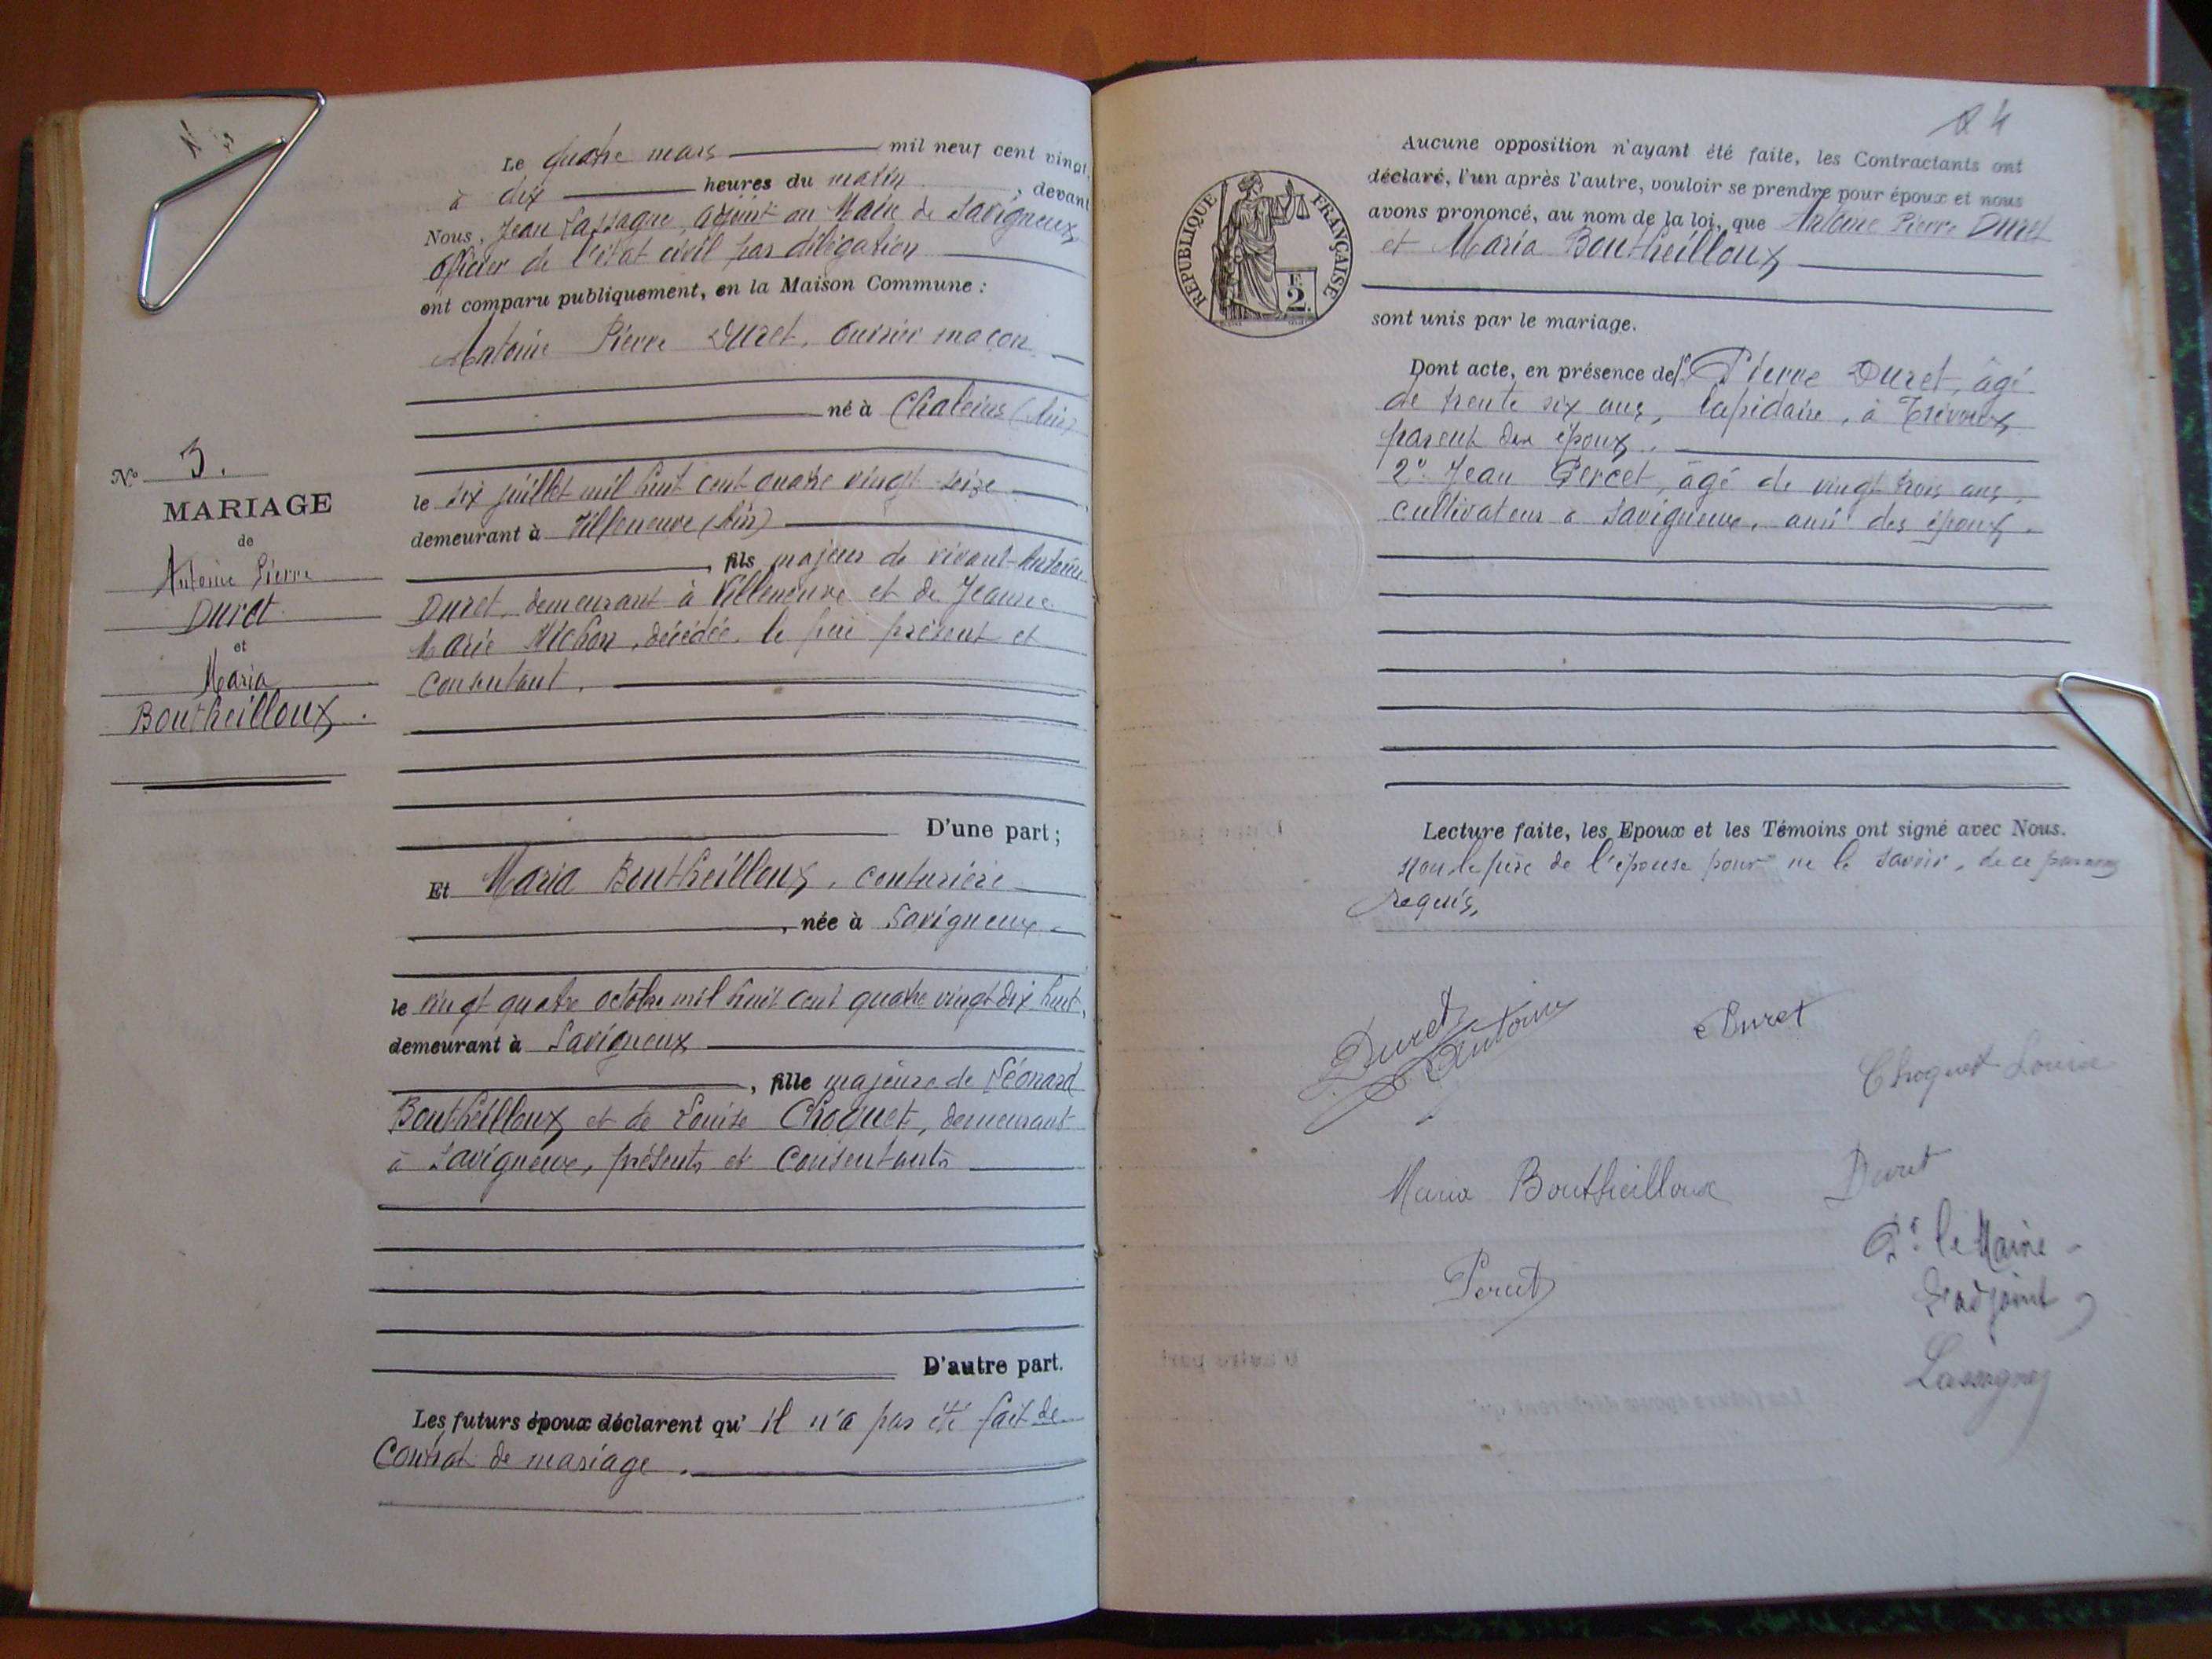 Le quatre mars mil neuf cent vingt,
à dix heures du matin, devant
Nous, Jean Lassagne, adjoint au Maire de Savigneux,
officier de l'état civil par délégation
ont comparu publiquement, en la Maison Commune :
Antoine Pierre Duret, ouvrier maçon
né à Chaleins (Ain)
le six juillet mil huit cent quatre vingt seize
demeurant à Villeneuve (Ain)
, fils majeur de vivant Antoine
Duret, demeurant à Villeneuve et de Jeanne
Marie Michon, décédée, le père présent et
consentant.
N° 3.
MARIAGE
de
Antoine Pierre
Duret
et
Maria
Boutheilloux.
D'une part ;
Et Maria Boutheilloux, couturière
, née à Savigneux
le vingt quatre octobre mil huit cent quatre vingt dix huit,
demeurant à Savigneux
, fille majeure de Léonard
Boutheilloux et de Louise Choquet, demeurant
à Savigneux, présents et consentants
D'autre part.
Les futurs époux déclarent qu'il n'a pas été fait de
contrat de mariage.
4
REPUBLIQUE FRANÇAISE
F.
2.
Aucune opposition n'ayant été faite, les Contractants ont
déclaré, l'un après l'autre, vouloir se prendre pour époux et nous
avons prononcé, au nom de la loi, que Antoine Pierre Duret
et Maria Boutheilloux
sont unis par le mariage.
Dont acte, en présence de 1° Pierre Duret, âgé
de trente six ans, lapidaire, à Trévoux,
parent des époux.
2° Jean Percet, âgé de vingt trois ans,
cultivateur à Savigneux, ami des époux.
Lecture faite, les Epoux et les Témoins ont signé avec Nous.
Non le père de l'épouse pour ne le savoir, de ce
requis.
Duret Antoine
Duret
Choquet Louise
Maria Boutheilloux
Duret
Percet
Pr le Maire
L'adjoint
Lassagne